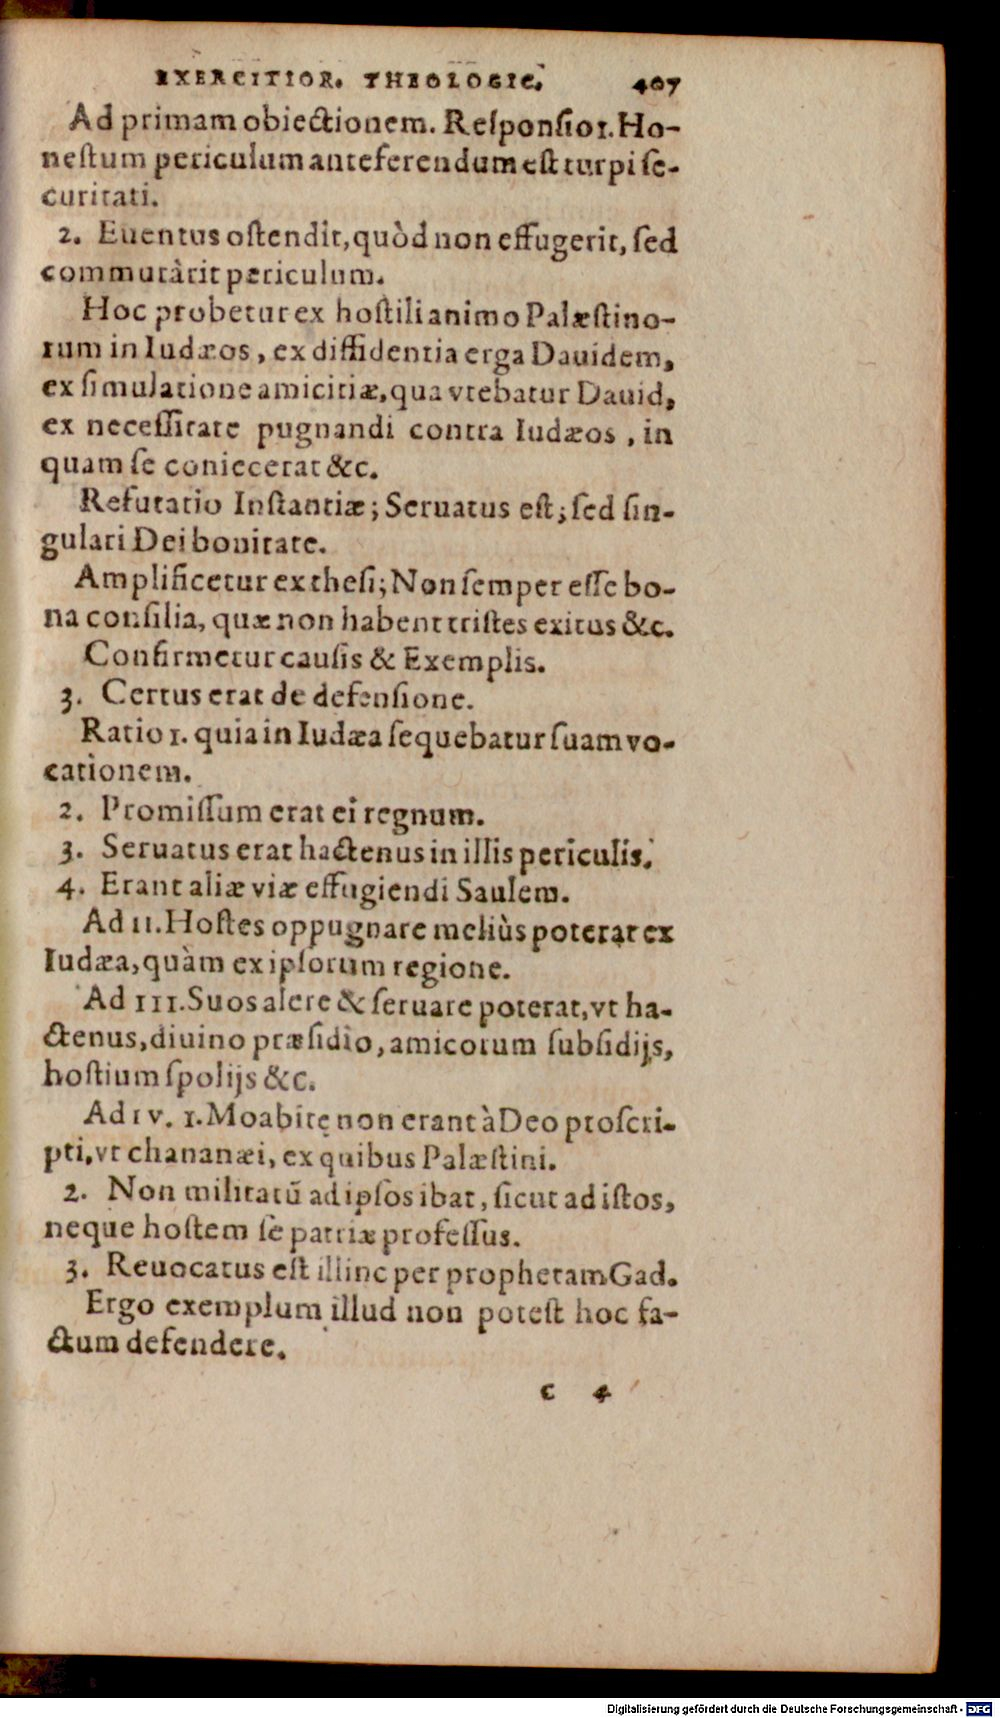 EXERCITIOR. THEOLOGIC. 407
Ad primam obiectionem. Responsio 1. Ho-
nestum periculum anteferendum est turpi se-
curitati.
2. Euentus ostendit, quòd non effugerit, sed
commutàrit periculum.
Hoc probetur ex hostili animo Palæstino-
rum in Iudæos, ex diffidentia erga Dauidem,
ex simulatione amicitiæ, qua vtebatur Dauid,
ex necessitate pugnandi contra Iudæos, in
quam se coniecerat &c.
Refutatio Instantiæ; Seruatus est; sed sin-
gulari Dei bonitate.
Amplificetur ex thesi; Non semper esse bo-
na consilia, quæ non habent tristes exitus &c.
Confirmetur causis & Exemplis.
3. Certus erat de defensione.
Ratio 1. quia in Iudæa sequebatur suam vo-
cationem.
2. Promissum erat ei regnum.
3. Seruatus erat hactenus in illis periculis.
4. Erant aliæ viæ effugiendi Saulem.
Ad II. Hostes oppugnare meliùs poterat ex
Iudæa, quàm ex ipsorum regione.
Ad III. Suos alere & seruare poterat, vt ha-
ctenus, diuino præsidio, amicorum subsidijs,
hostium spolijs &c.
Ad IV. 1. Moabitę non erant à Deo proscri-
pti, vt chananæi, ex quibus Palæstini.
2. Non militatū ad ipsos ibat, sicut ad istos,
neque hostem se patriæ professus.
3. Reuocatus est illinc per prophetam Gad.
Ergo exemplum illud non potest hoc fa-
ctum defendere.
c 4
Digitalisierung gefördert durch die Deutsche Forschungsgemeinschaft - DFG